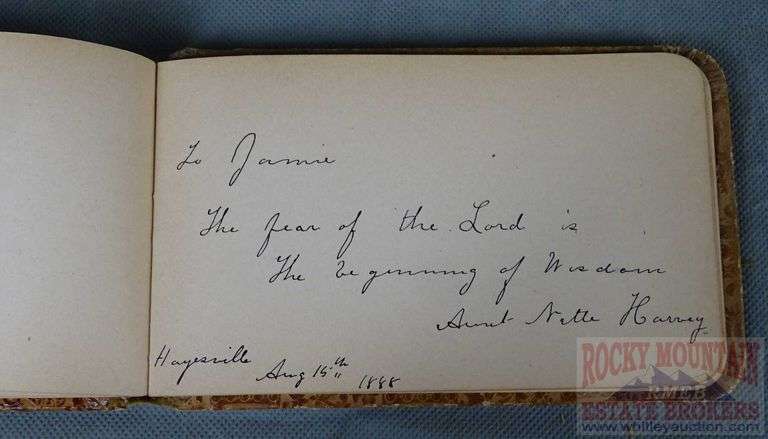 To Jamie
The fear of the Lord is
The beginning of Wisdom
Aunt Nette Harvey
Hayesville Aug 15th 1888
ROCKY MOUNTAIN
ESTATE BROKERS
www.whitleyauction.com